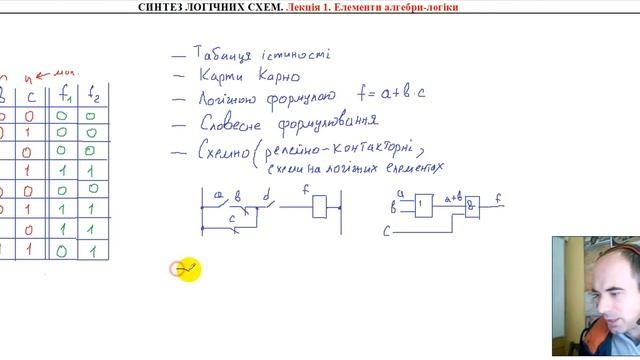 СИНТЕЗ ЛОГІЧНИХ СХЕМ. Лекція 1. Елементи алгебри-логіки
— Таблиця істиності
— Карти Карно
— Логічною формулою f = a+b·c
— Словесне формулювання
— Схемно (релейно-контакторні,
схеми на логічних елементах
n ← мол.
b c f1 f2
0 0 0 0
0 1 0 0
0 0 0
1 1 1
0 0 0 0
0 1 1 1
0 1 1
1 1 0 1
a b d f
c
a
b 1 a+b & f
c